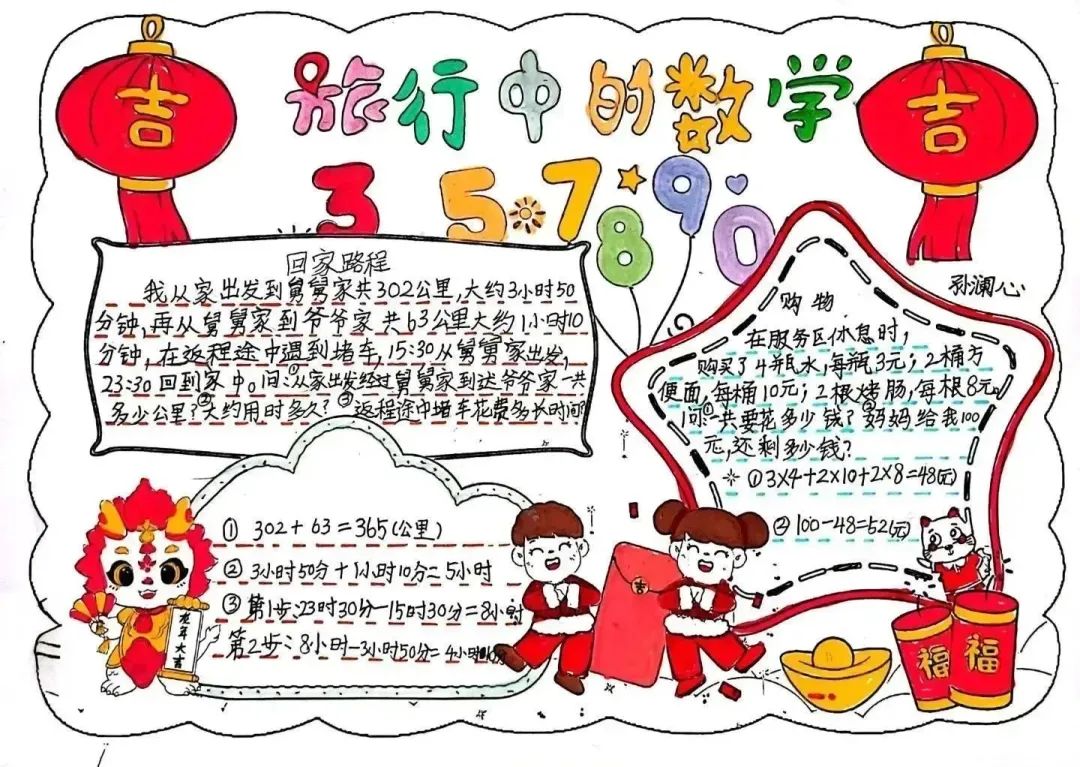 旅行中的数学
吉
吉
3 5 7 8 9 0
回家路程
我从家出发到舅舅家共302公里,大约3小时50
分钟,再从舅舅家到爷爷家共63公里大约1小时10
分钟,在返程途中遇到堵车,15:30从舅舅家出发,
23:30回到家中。问:①从家出发经过舅舅家到达爷爷家一共
多少公里?②大约用时多久?③返程途中堵车花费多长时间?
① 302+63=365(公里)
② 3小时50分+1小时10分=5小时
③ 第1步:23时30分-15时30分=8小时
第2步:8小时-3小时50分=4小时
孙澜心
购物
在服务区休息时,
购买了4瓶水,每瓶3元;2桶方
便面,每桶10元;2根烤肠,每根8元。
问①一共要花多少钱?②妈妈给我100
元,还剩多少钱?
※ ①3×4+2×10+2×8=48(元)
②100-48=52(元)
龙年大吉
吉
福
福